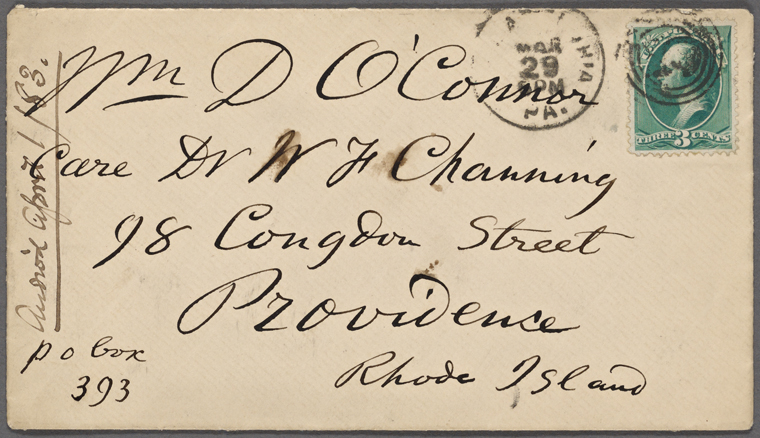 Wm D O'Connor
Care Dr W F Channing
98 Congdon Street
Providence
Rhode Island
p o box
393
April 1/83.
MAR
29
PM
PA.
THREE 3 CENTS